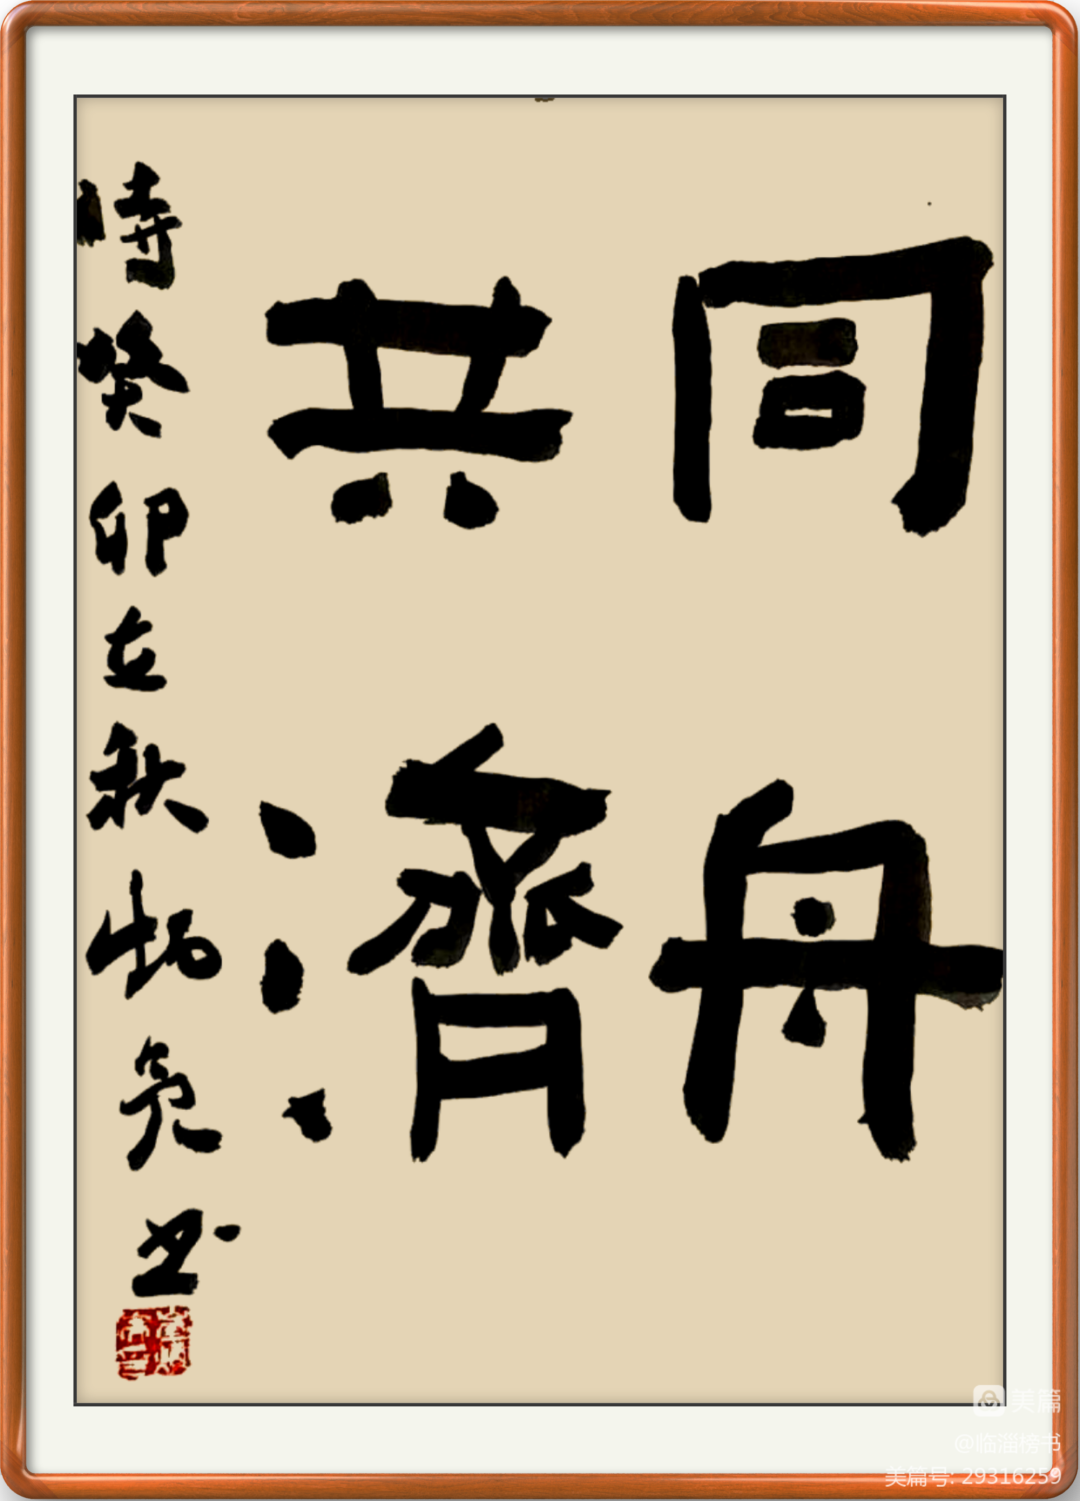 同舟
共濟
時癸卯立秋炳亮書
美篇
@临淄榜书
美篇号: 29316259